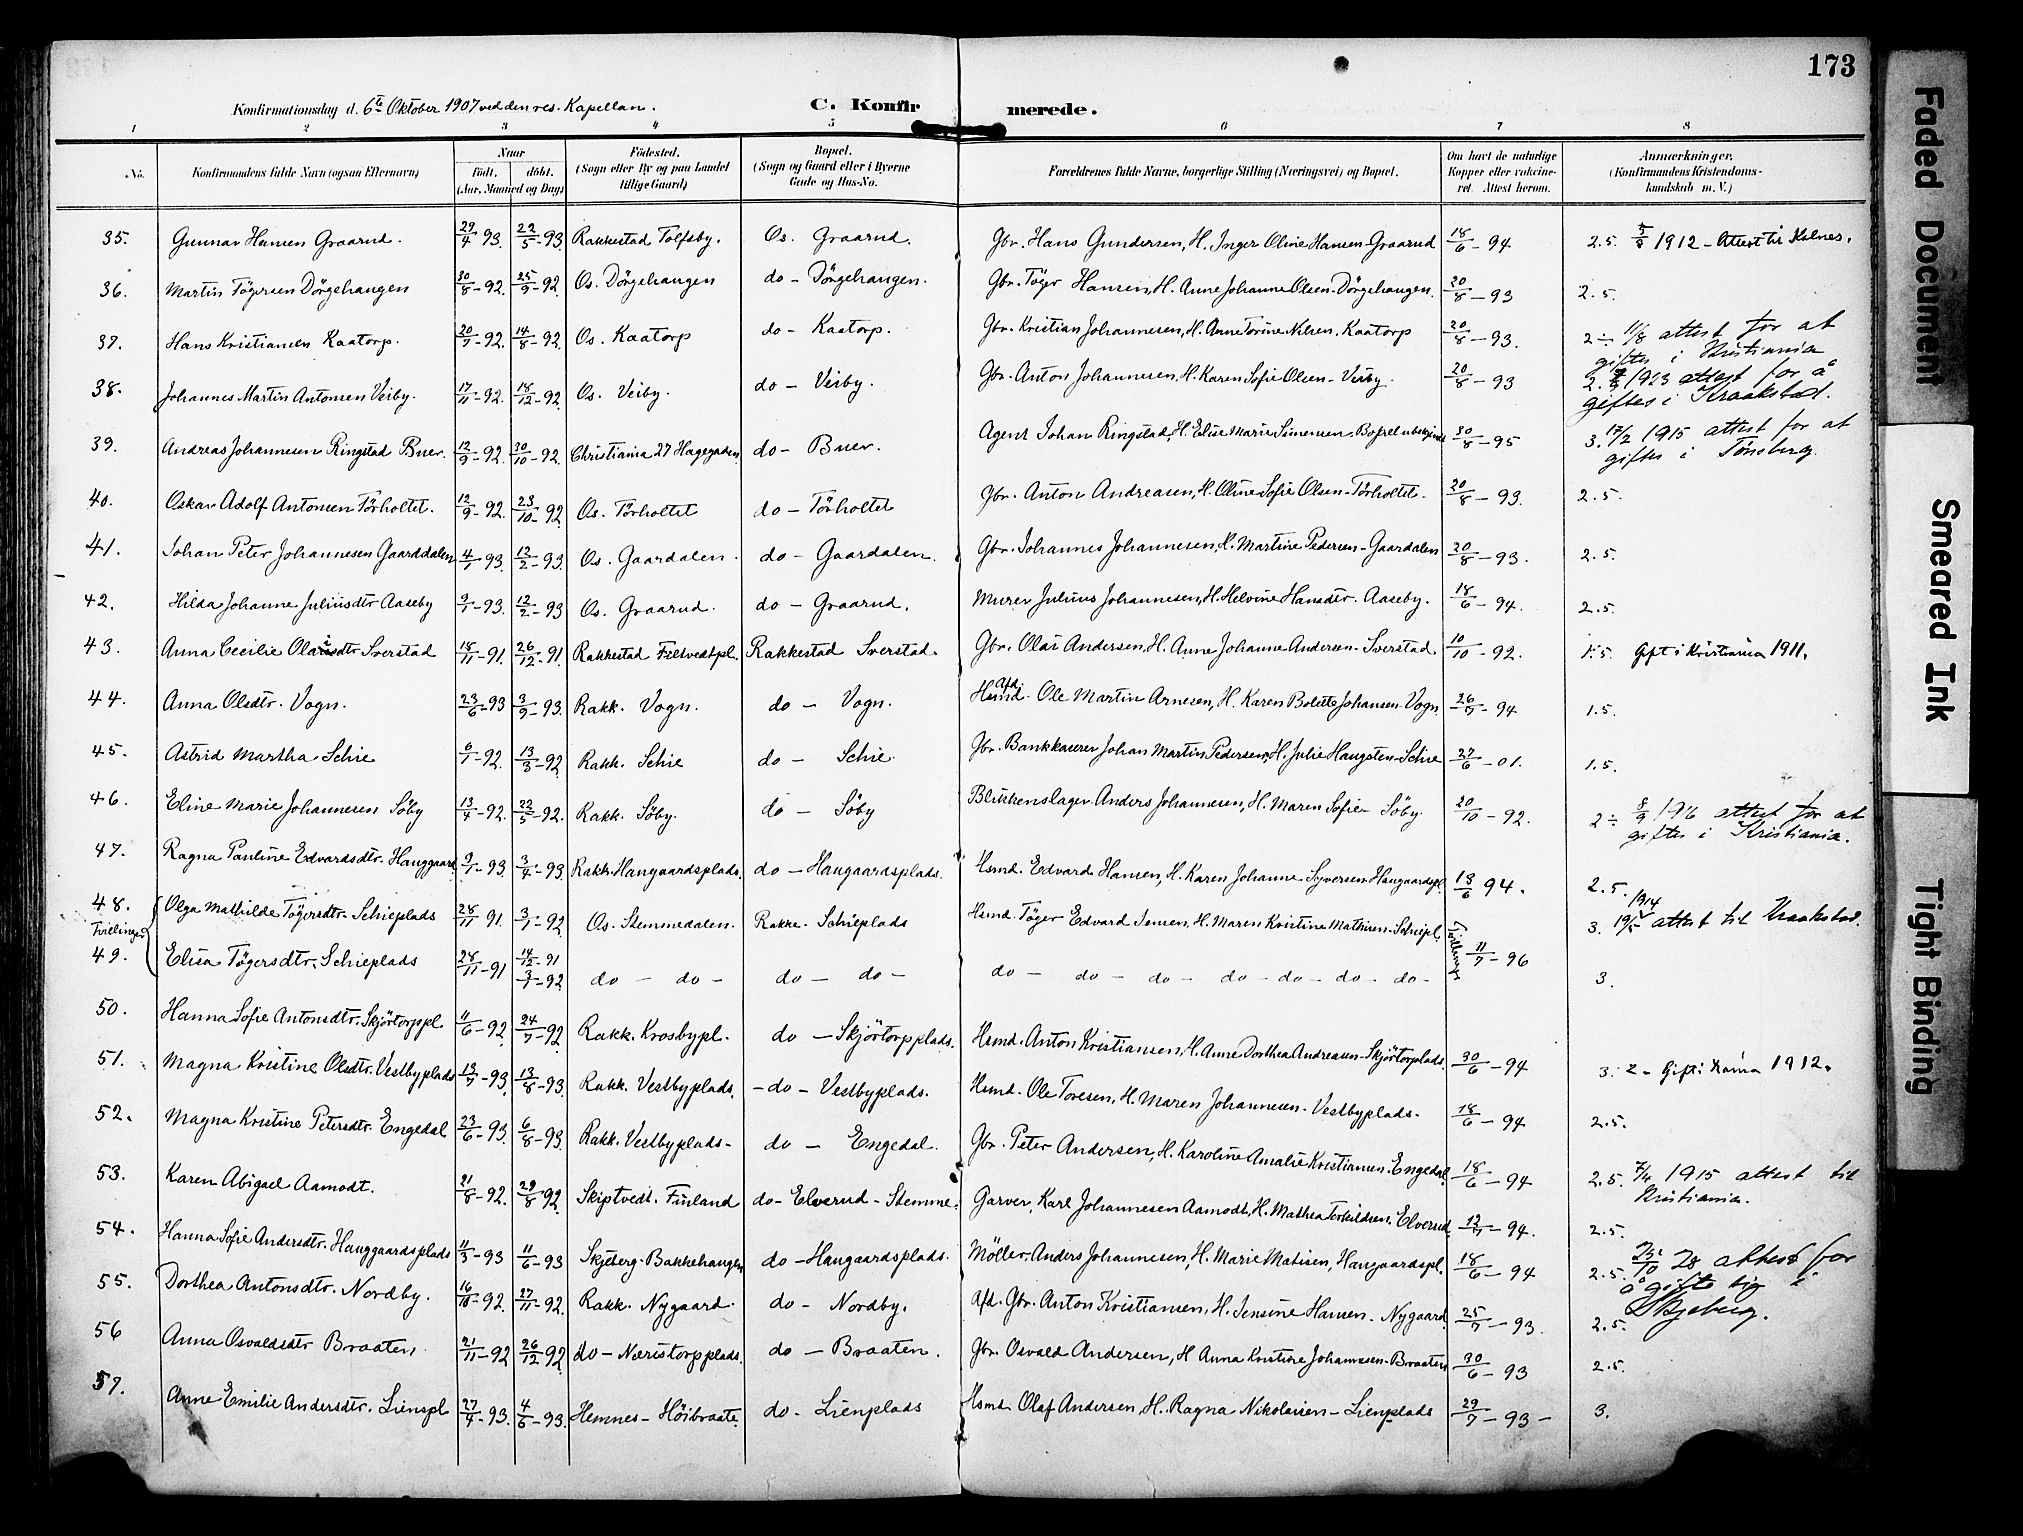 173
Konfirmationsdag d. 6te Oktober 1907 ved den res. Kapellan.
C. Konfirmerede.
1 2 3 4 5 6 7 8
No. Konfirmandens fulde Navn (ogsaa Efternavn) Naar født. døbt. (Aar, Maaned og Dag) Fødested. (Sogn eller By og paa Landet tillige Gaard) Bopæl. (Sogn og Gaard eller i Byerne Gade og Hus-No. Forældrenes fulde Navne, borgerlige Stilling (Næringsvei) og Bopæl. Om havt de naturlige Kopper eller vakcineret. Attest herom. Anmærkninger. (Konfirmandens Kristendomskundskab m. V.)
35. Gunnar Hansen Graarud. 29/4 93. 22/5-93 Rakkestad Tolfsby. Os. Graarud. Gbr. Hans Gundersen, H. Inger Oline Hansen-Graarud 18/6-94 2.5. 5/8 1912 - Attest til Kalnes.
36. Martin Tögersen Dörgehaugen 30/8-92. 25/9-92. Os. Dörgehaugen do - Dörgehaugen. Gbr. Töger Hansen, H. Anne Johanne Olsen-Dörgehaugen. 20/8-93 2.5.
37. Hans Kristiansen Kaatorp. 20/7-92. 14/8-92. Os. Kaatorp do - Kaatorp. Gbr. Kristian Johannesen, H. Anne Torine Nilsen, Kaatorp 20/8-93. 2÷ 11/8 attest for at giftes i Kristiania
38. Johannes Martin Antonsen Veiby. 17/11-92. 18/12-92. Os. Veiby. do - Veiby. Gbr. Anton Johannesen, H. Karen Sofie Olsen-Veiby. 20/8-93 2. 1923 attest for å giftes i Kraakstad.
39. Andreas Johannesen Ringstad Buer. 12/9-92. 30/10-92. Christiania 27 Hagegaden do - Buer. Agent Johan Ringstad, H. Elise Marie Simensen. Bopæl ubekjendt 30/8-95 3. 17/2 1915 attest for at giftes i Tönsberg.
40. Oskar Adolf Antonsen Törholtet. 12/9-92. 23/10-92 Os. Törholtet do - Törholtet Gbr. Anton Andreasen, H. Oline Sofie Olsen-Törholtet. 20/8-93. 2.5.
41. Johan Peter Johannesen Gaarddalen 4/1 93. 12/2-93. Os. Gaardalen. do - Gaardalen. Gbr. Johannes Johannesen, H. Martine Pedersen-Gaardalen 20/8-93. 2.5.
42. Hilda Johanne Juliusdtr Aaseby 9/1-93. 12/2-93 Os. Graarud. do - Graarud. Murer Julius Johannesen, H. Helvine Hansdtr. Aaseby. 18/6-94. 2.5.
43. Anna Cecilie Olaisdtr Sverstad 18/11-91. 26/12-91. Rakkestad Filtvedtpl. Rakkestad Sverstad. Gbr. Olai Andersen, H. Anne Johanne Andersen-Sverstad. 10/10-92. 1.5. Gift i Kristiania 1911.
44. Anna Olsdtr. Vogn. 23/6-93 3/9-93. Rakk. Vogn. do - Vogn. Afd. Hsmd. Ole Martin Arnesen, H. Karen Bolette Johansen-Vogn. 26/7-94 1.5.
45. Astrid Martha Schie 6/1-92. 13/3-92. Rakk. Schie do - Schie. Gbr. Bankkaserer Johan Martin Pedersen, H. Julie Haugsten-Schie 27/6-01. 1.5.
46. Eline Marie Johannesen Söby 13/4-92. 22/5-92. Rakk. Söby. do - Söby Blikkenslager Anders Johannesen, H. Maren Sofie Söby. 20/10-92. 2÷ 8/9 1916 attest for at giftes i Kristiania.
47. Ragna Pauline Edvardsdtr. Hauggaard 9/1-93. 3/4-93. Rakk. Haugaardsplads. do - Haugaardsplads. Hsmd. Edvard Hansen, H. Karen Johanne Syversen Haugaardspl. 18/6 94. 2.5.
48. Olga Mathilde Tögersdtr. Schieplads 28/11 91. 3/7-92 Os. Stemmedalen. Rakke. Schieplads Hsmd. Töger Edvard Jensen, H. Maren Kristine Mathisen-Schiepl. 11/7-96 3. 19/5 1914 attest til Kraakstad.
Tvillinger Tvillinger
49. Elisa Tögersdtr. Schieplads 28/11-91 14/12-91 3/7-92 do - do - do - do - do - do - do - do - do - do - do - 3.
50. Hanna Sofie Antonsdtr. Skjörtorppl. 11/6-92 24/7-92. Rakk. Krosbypl. do - Skjörtorpplads. Hsmd. Anton Kristiansen, H. Anne Dorthea Andreasen-Skjörtorplads. 30/6-94
51. Magna Kristine Olsdtr. Vestbyplads 13/7-93. 13/8-93. Rakk. Vestbyplads. - do - Vestbyplads. Hsmd. Ole Toresen, H. Maren Johannesen. Vestbyplads. 18/6-94 3. 2 - Gift i Xania 1912.
52. Magna Kristine Petersdtr. Engedal 23/6-93. 6/8-93. Rakk. Vestbyplads- do - Engedal. Gbr. Peter Andersen, H. Karoline Amalie Kristiansen. Engedal. 18/6-94 2.5.
53. Karen Abigael Aamodt. 21/8-92. 29/8 92. Skiptvedt. Finland do - Elverud - Stemme. Garver, Karl Johannesen Aamodt, H. Mathea Terkildsen, Elverud. 12/7-94. 2.5. 7/4 1915 attest til Kristiania.
54. Hanna Sofie Andersdtr. Hauggaardsplads 11/3-93 11/6-93 Skjeberg-Bakkehaugen do - Haugaardsplads. Möller, Anders Johannesen, H. Marie Matisen, Haugaardspl. 18/6-94 2.5.
55. Dorthea Antonsdtr. Nordby. 16/10-92. 27/11-92. Rakk. Nygaard. do - Nordby. Afd. Gbr. Anton Kristiansen, H. Jensine Hansen. Nygaard. 25/7-93. 2.5. 28 attest for å gifte sig i Skjeberg.
56 Anna Osvaldsdtr Braaten. 21/11-92 26/12 92. do - Næristorpplads. do - Braaten. Gbr. Osvald Andersen, H Anna Kristine Johannesen-Braaten 30/6-93 2.5.
57. Anne Emilie Andersdtr. Lienspl 27/4-93. 4/6-93. Hemnes - Höibraate. do - Lienplads Hsmd. Olaf Andersen, H. Ragna Nikolaisen-Lienplads 29/7-93- 3.
Faded Document
Smeared Ink
Tight Binding